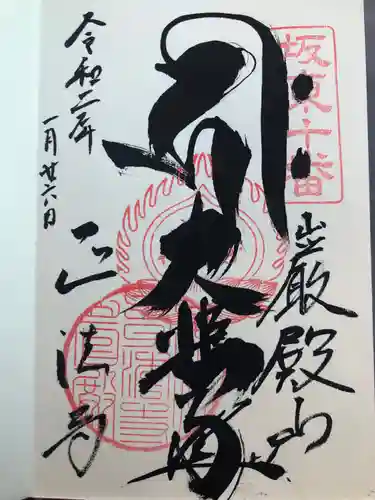 坂東十番
巌殿山
大悲殿
令和二年
一月廿六日
正法寺